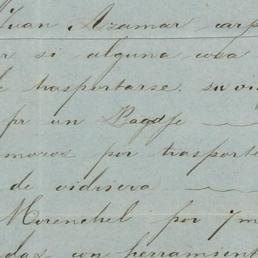 Juan Azamar carp
r si alguna cosa
e trasportarse su vi
pr un Bagaje
moros por trasporte
de vidriera
Morenchel por 7 m
das con herramient